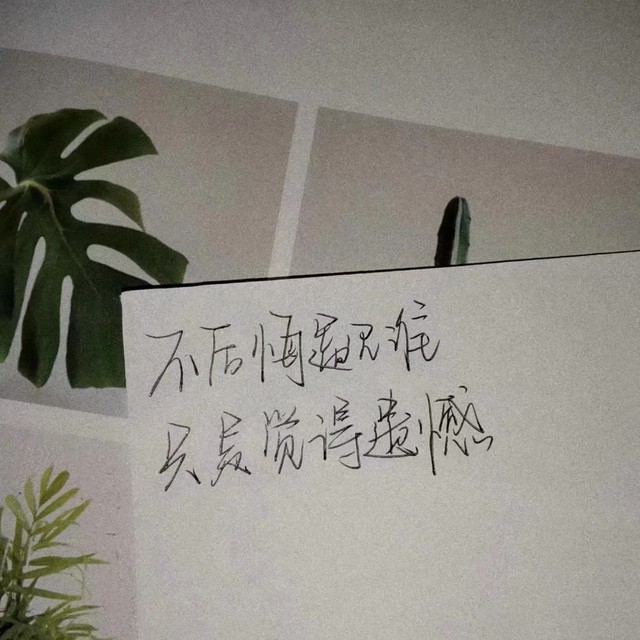 不后悔遇见谁
只是觉得遗憾